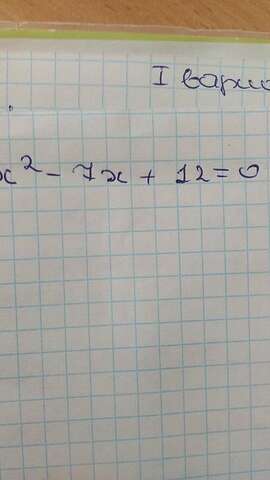 I вариа
.
x² - 7x + 12 = 0